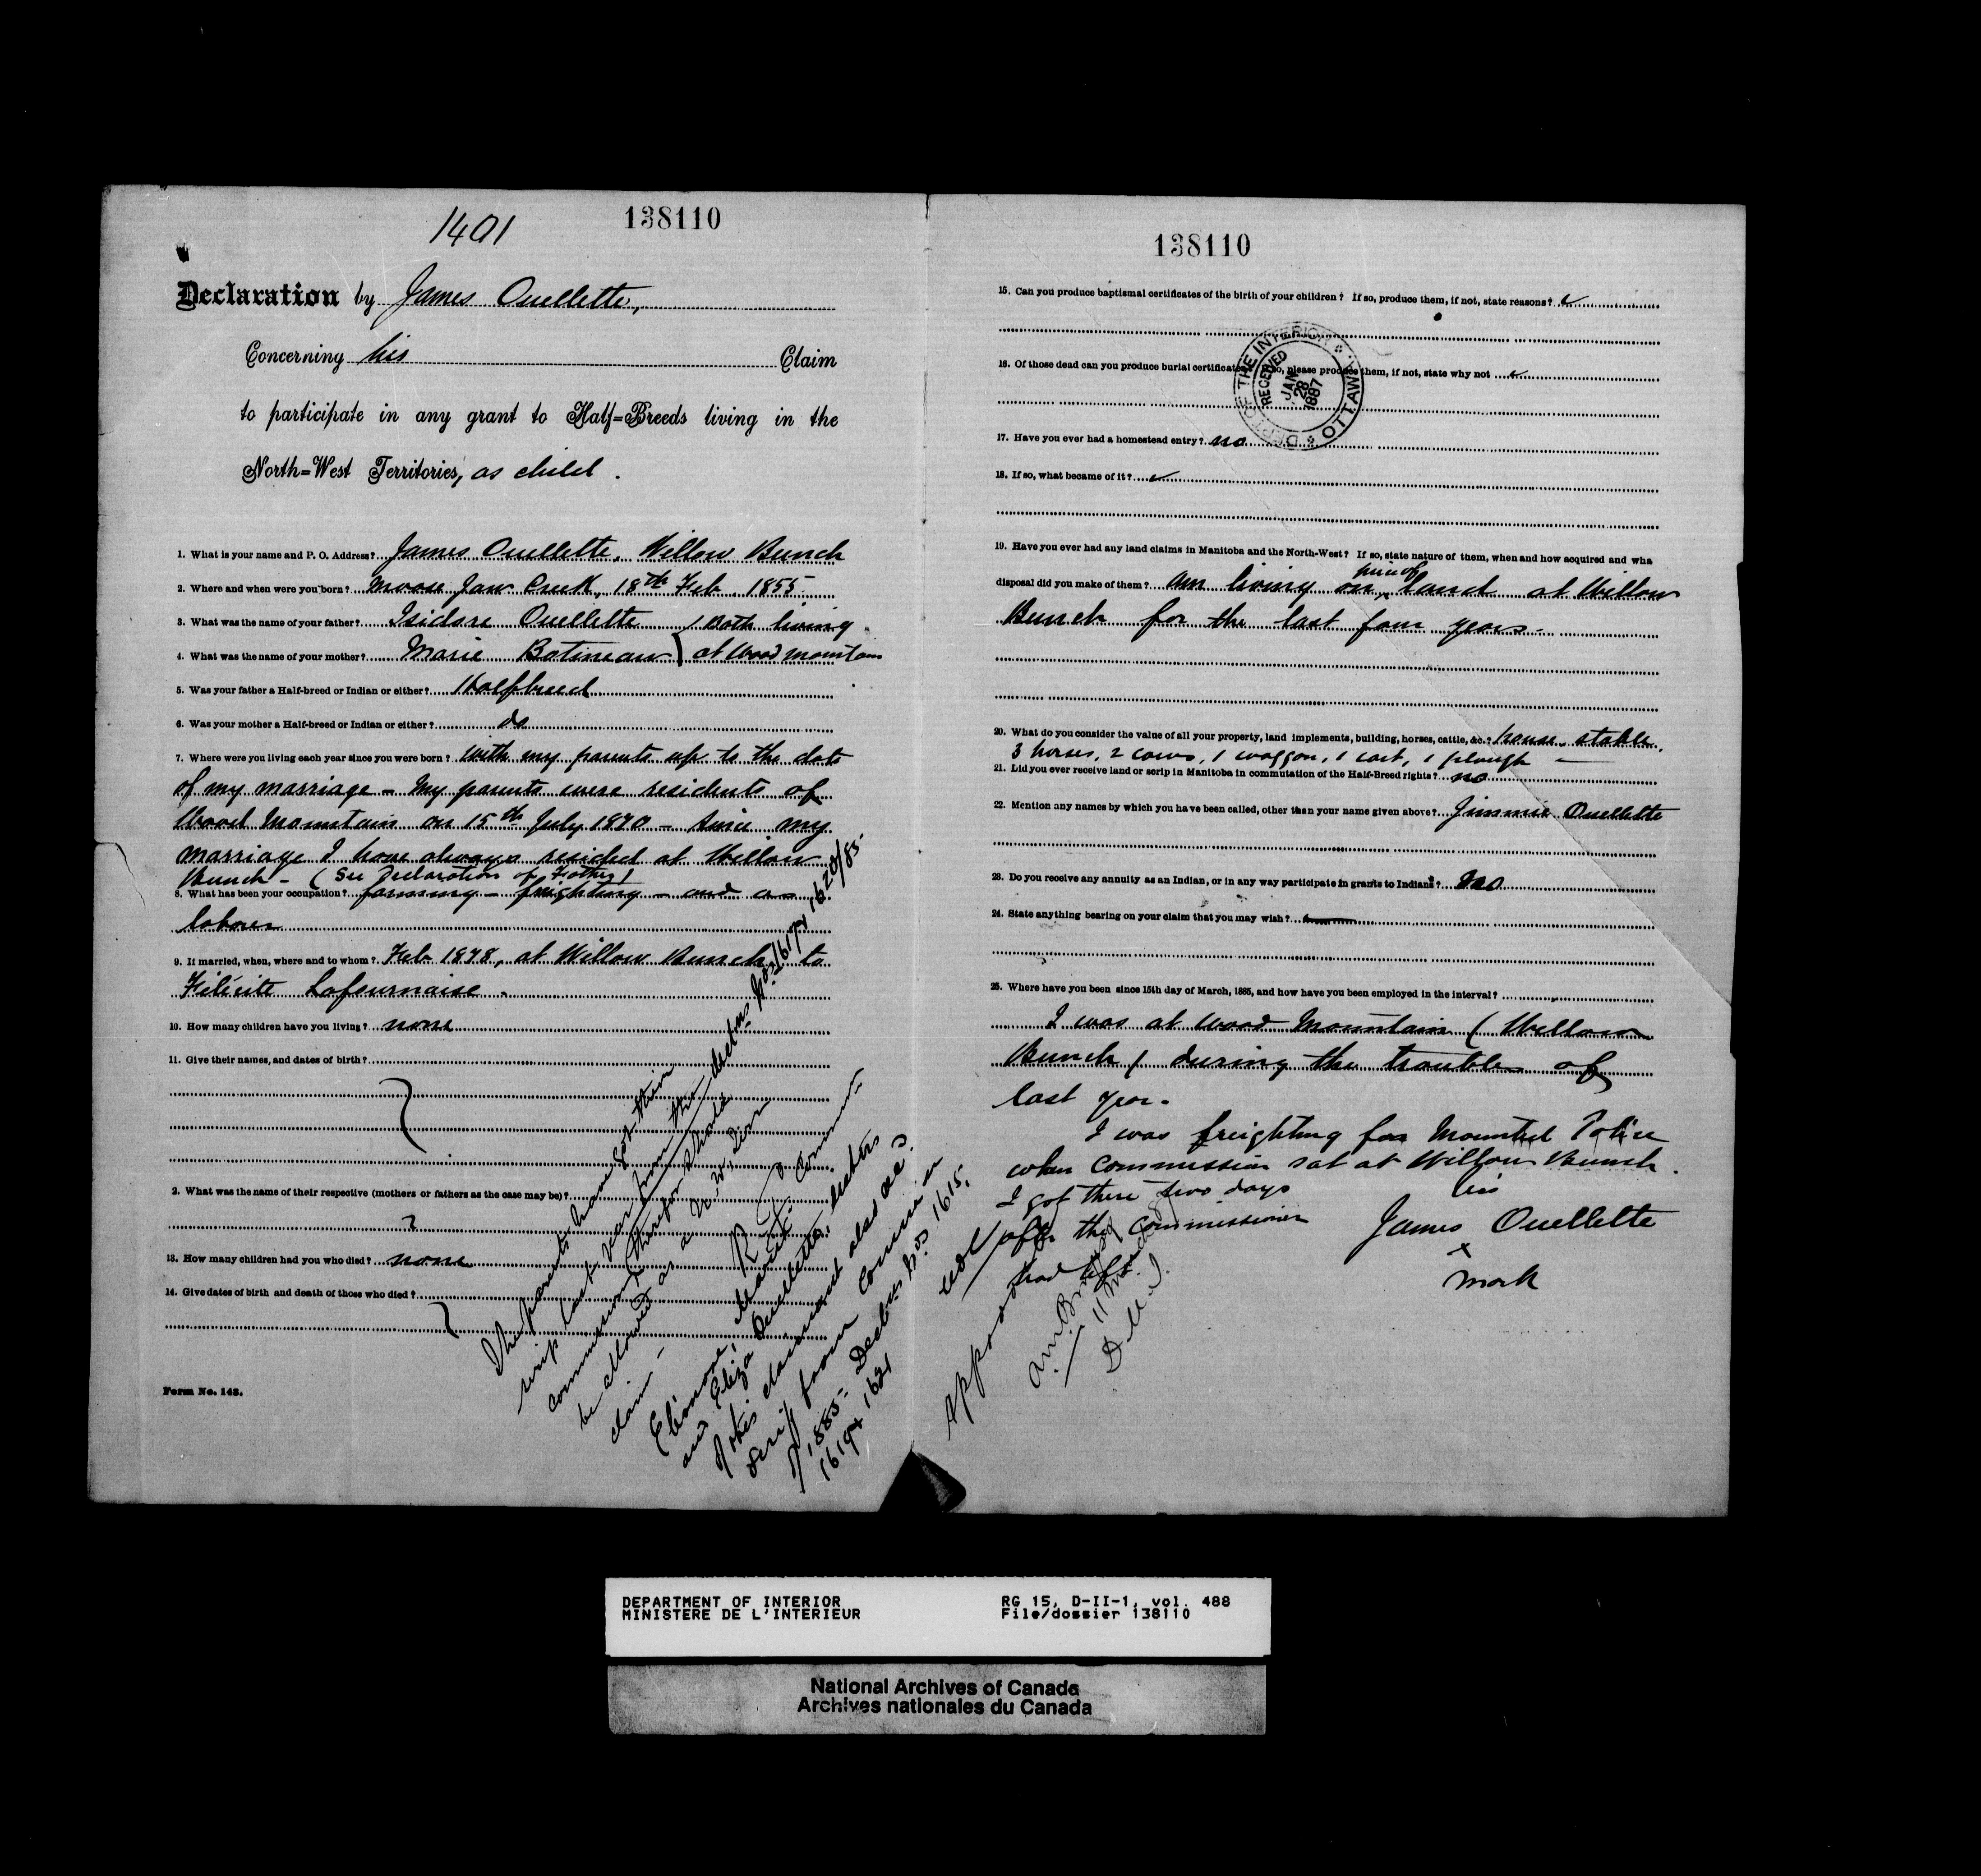 1401
138110
Declaration by James Ouellette,
Concerning his Claim
to participate in any grant to Half=Breeds living in the
North=West Territories, as child.
1. What is your name and P. O. Address? James Ouellette, Willow Bunch
2. Where and when were you born? Moose Jaw Creek, 18th Feb. 1855.
3. What was the name of your father? Isidore Ouellette } Both living
4. What was the name of your mother? Marie Botineau } at Wood Mountain
5. Was your father a Half-breed or Indian or either? Halfbreed
6. Was your mother a Half-breed or Indian or either? do
7. Where were you living each year since you were born? With my parents up to the date
of my marriage - My parents were residents of
Wood Mountain on 15th July 1870 - Since my
marriage I have always resided at Willow
Bunch - (See Declaration of Father)
8. What has been your occupation? farming - freighting - and as
laborer
9. If married, when, where and to whom? Feb. 1878, at Willow Bunch to
Félicité Lafournaise.
10. How many children have you living? none
11. Give their names, and dates of birth?
2. What was the name of their respective (mothers or fathers as the case may be)?
13. How many children had you who died? none
14. Give dates of birth and death of those who died?
The parents have got their
scrip last year from the declns Nos 1617 & 1620/85
commission (therefor should
be allowed as a N. W. Terr
claim -
R G
Commr
Eléonore, Marie
and Eliza Ouellette, sisters
of this claimant also recd
scrip from Commission
of 1885 - Declns Nos 1615,
1619 & 1621
Form No. 143.
138110
15. Can you produce baptismal certificates of the birth of your children? If so, produce them, if not, state reasons?
16. Of those dead can you produce burial certificates? If so, please produce them, if not, state why not
DEPT. OF THE INTERIOR
RECEIVED
JAN
28
1887
OTTAWA
17. Have you ever had a homestead entry? no
18. If so, what became of it?
19. Have you ever had any land claims in Manitoba and the North-West? If so, state nature of them, when and how acquired and wha
disposal did you make of them? am living on piece of land at Willow
Bunch for the last four years.
20. What do you consider the value of all your property, land implements, building, horses, cattle, &c.? house, stable,
3 horses, 2 cows, 1 waggon, 1 cart, 1 plough -
21. Did you ever receive land or scrip in Manitoba in commutation of the Half-Breed rights? no
22. Mention any names by which you have been called, other than your name given above? Jimmie Ouellette
23. Do you receive any annuity as an Indian, or in any way participate in grants to Indians? No
24. State anything bearing on your claim that you may wish?
25. Where have you been since 15th day of March, 1885, and how have you been employed in the interval?
I was at Wood Mountain (Willow
Bunch) during the trouble of
last year.
I was freighting for Mounted Police
when commission sat at Willow Bunch.
I got there two days
after the commissioner
had left
his
James Ouellette
x
mark
Approved
A.M. Burgess
D.M.I.
DEPARTMENT OF INTERIOR
MINISTERE DE L'INTERIEUR
RG 15, D-II-1, vol. 488
File/dossier 138110
National Archives of Canada
Archives nationales du Canada